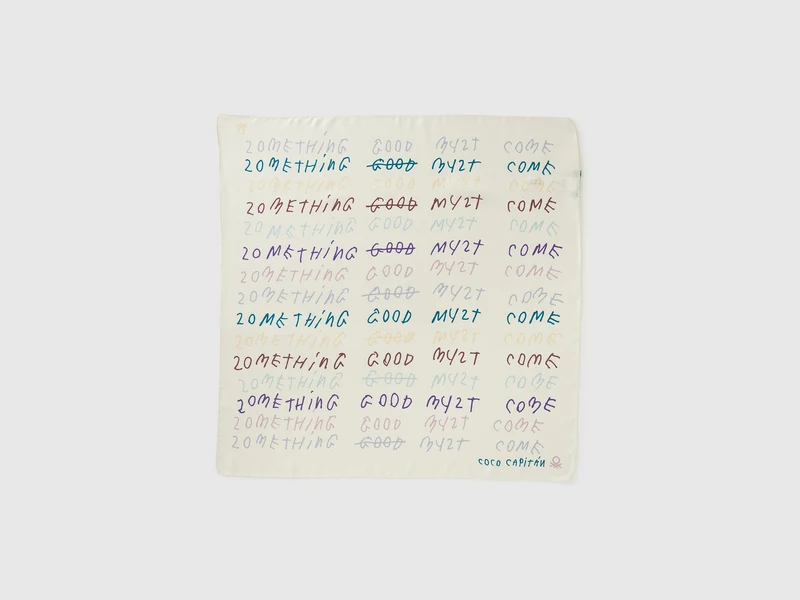 2OMETHiNG GOOD MY2T COME
2OMETHiNG GOOD MY2T COME
2OMETHiNG GOOD MY2T COME
2OMETHiNG GOOD MY2T COME
2OMETHiNG GOOD MY2T COME
2OMETHiNG GOOD MY2T COME
2OMETHiNG GOOD MY2T COME
2OMETHiNG GOOD MY2T COME
2OMETHiNG GOOD MY2T COME
2OMETHiNG GOOD MY2T COME
2OMETHiNG GOOD MY2T COME
2OMETHiNG GOOD MY2T COME
2OMETHiNG GOOD MY2T COME
2OMETHiNG GOOD MY2T COME
2OMETHiNG GOOD MY2T COME
COCO CAPiTÁN